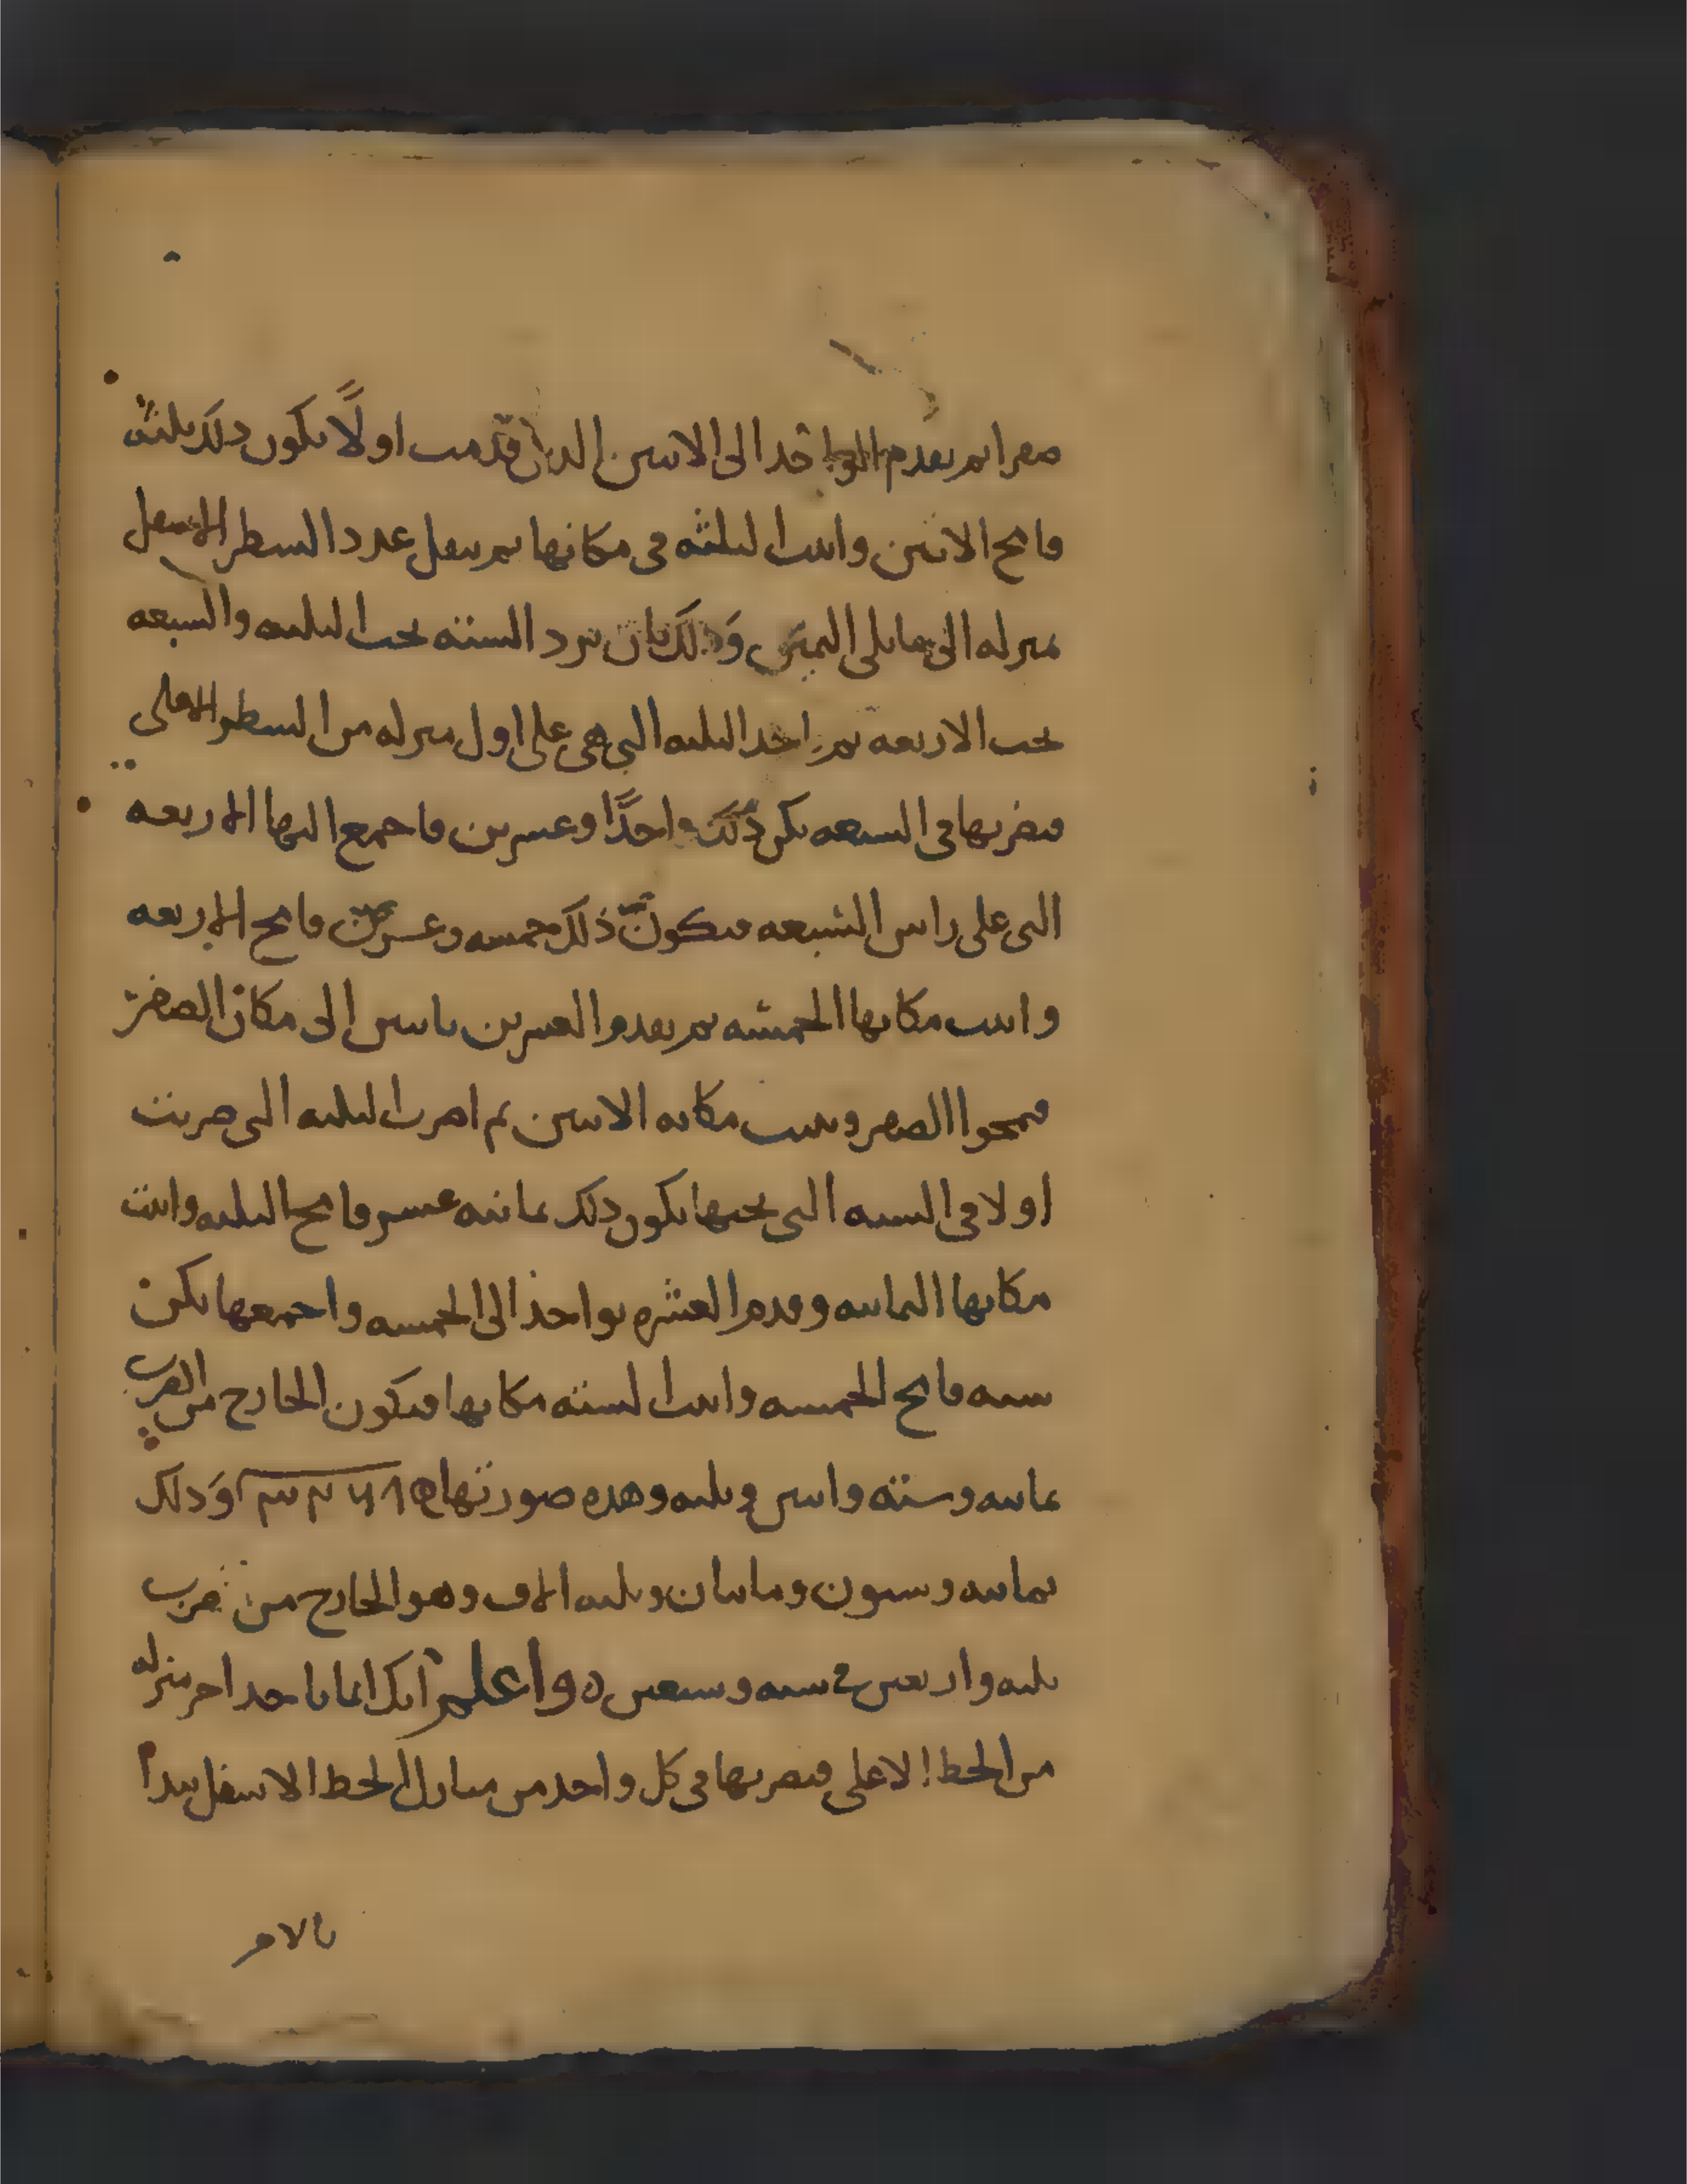 صفرا ثم تقدم الواحد الى الاثنين الذين قدمت اولًا يكون ذلك ثلثة
فامح الاثنين واثبت الثلثة في مكانها ثم تنقل عدد السطر الاسفل
منزله الى ما يلي اليمين وَذلك بان ترد الستة تحت الثلثه والسبعه
تحت الاربعه ثم تاخذ الثلثه التي هي على اول منزله من السطر الاعلى
فتضربها في السبعه يكن ذلك واحدًا وعشرين فاجمع اليها الاربعه
التي على راس السبعه فيكون ذلك خمسه وعشرين فامح الاربعه
واثبت مكانها الخمسه ثم تقدم العشرين باثنين الى مكان الصفر
فتمحوا الصفر وتثبت مكانه الاثنين ثم اضرب الثلثه التي ضربت
اولا في الستة التي تحتها يكون ذلك ثمانيه عشر فامح الثلثه واثبت
مكانها الثمانيه وقدم العشره بواحد الى الخمسه واجمعها يكن
سته فامح الخمسه واثبت الستة مكانها فيكون الخارج من الضرب
ثمانيه وستة واثنين وثلثه وهذه صورتها ٣٢٦٨ وَذلك
ثمانيه وستون ومايتان وثلثه الاف وهو الخارج من ضرب
ثلثه واربعين في سته وسبعين ه واعلم انك انما تاخذ اخر منزله
من الخط الاعلى فتضربها في كل واحد من منازل الخط الاسفل تبدا
بالام